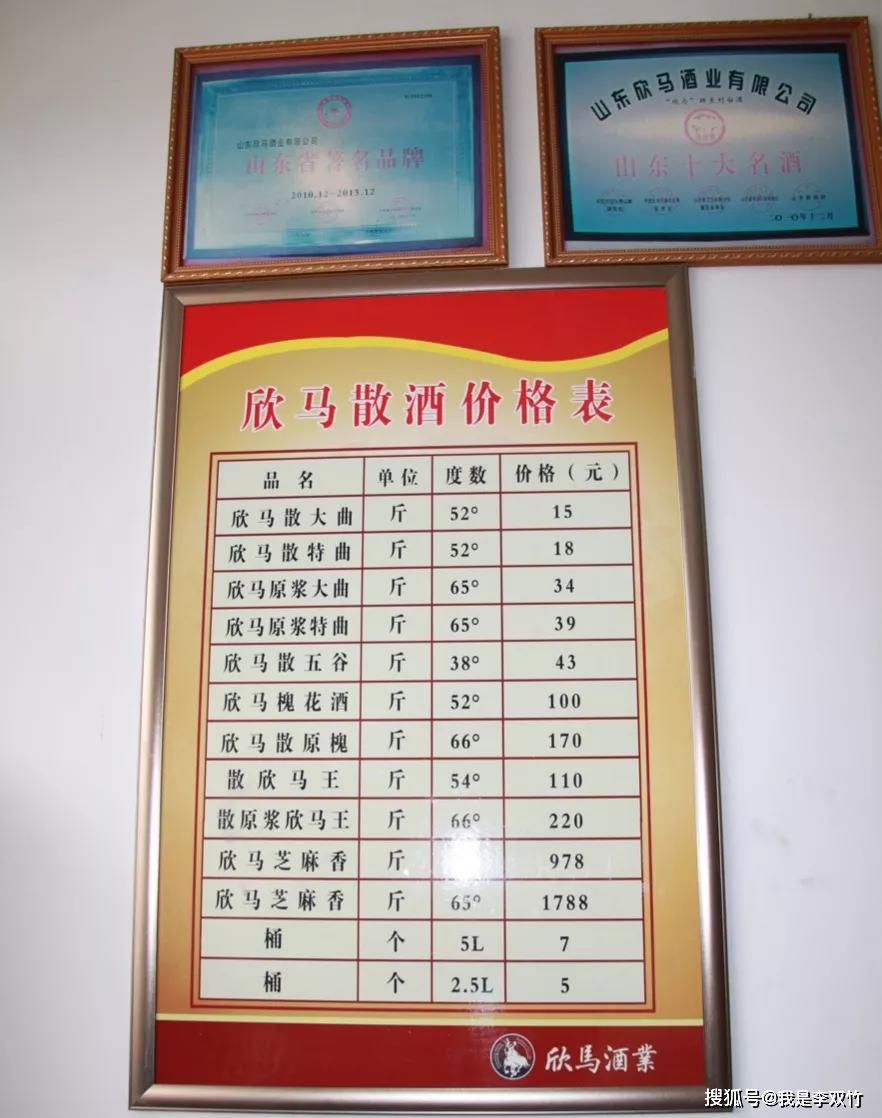 山东欣马酒业有限公司
山东省著名品牌
2010.12-2013.12
山东欣马酒业有限公司
山东十大名酒
二〇一〇年十二月
欣马散酒价格表
品名 单位 度数 价格（元）
欣马散大曲 斤 52° 15
欣马散特曲 斤 52° 18
欣马原浆大曲 斤 65° 34
欣马原浆特曲 斤 65° 39
欣马散五谷 斤 38° 43
欣马槐花酒 斤 52° 100
欣马散原槐 斤 66° 170
散欣马王 斤 54° 110
散原浆欣马王 斤 66° 220
欣马芝麻香 斤 978
欣马芝麻香 斤 65° 1788
桶 个 5L 7
桶 个 2.5L 5
欣馬酒業
搜狐号@我是李双竹